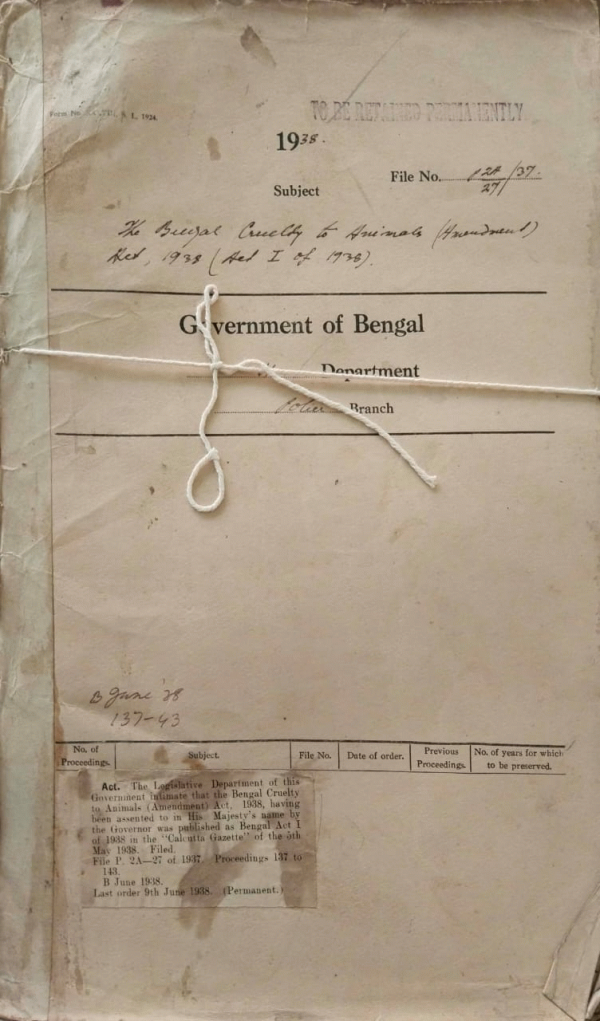 TO BE RETAINED PERMANENTLY
1938.
File No. P 2A/27/37.
Subject
The Bengal Cruelty to Animals (Amendment)
Act, 1938 (Act I of 1938).
Government of Bengal
Department
Police Branch
B June '38
137-43
No. of Proceedings.
Subject.
File No.
Date of order.
Previous Proceedings.
No. of years for which to be preserved.
Act. The Legislative Department of this
Government intimate that the Bengal Cruelty
to Animals (Amendment) Act, 1938, having
been assented to in His Majesty's name by
the Governor was published as Bengal Act I
of 1938 in the "Calcutta Gazette" of the 5th
May 1938. Filed.
File P. 2A—27 of 1937. Proceedings 137 to
143.
B June 1938.
Last order 9th June 1938. (Permanent.)